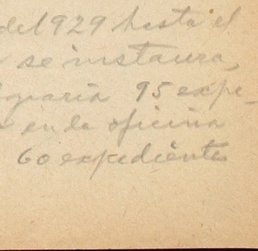 del 1929 hasta el
se instaura,
95 expe-
en la oficina
60 expedientes